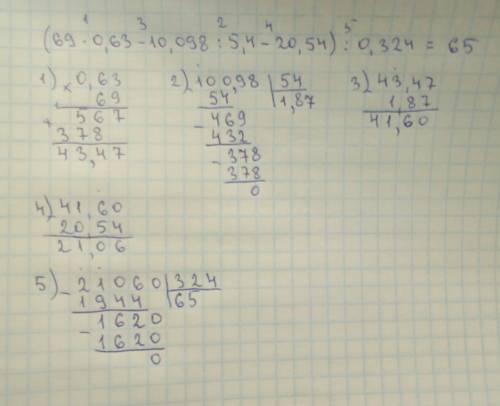 1 3 2 4 5
(69 · 0,63 - 10,098 : 5,4 - 20,54) : 0,324 = 65
1) × 0,63 2) 100,98 | 54 3) 43,47
69 54 1,87 1,87
+ 567 - 469 41,60
378 432
43,47 - 378
378
0
4) 41,60
20,54
21,06
5) - 21060 | 324
1944 65
- 1620
1620
0